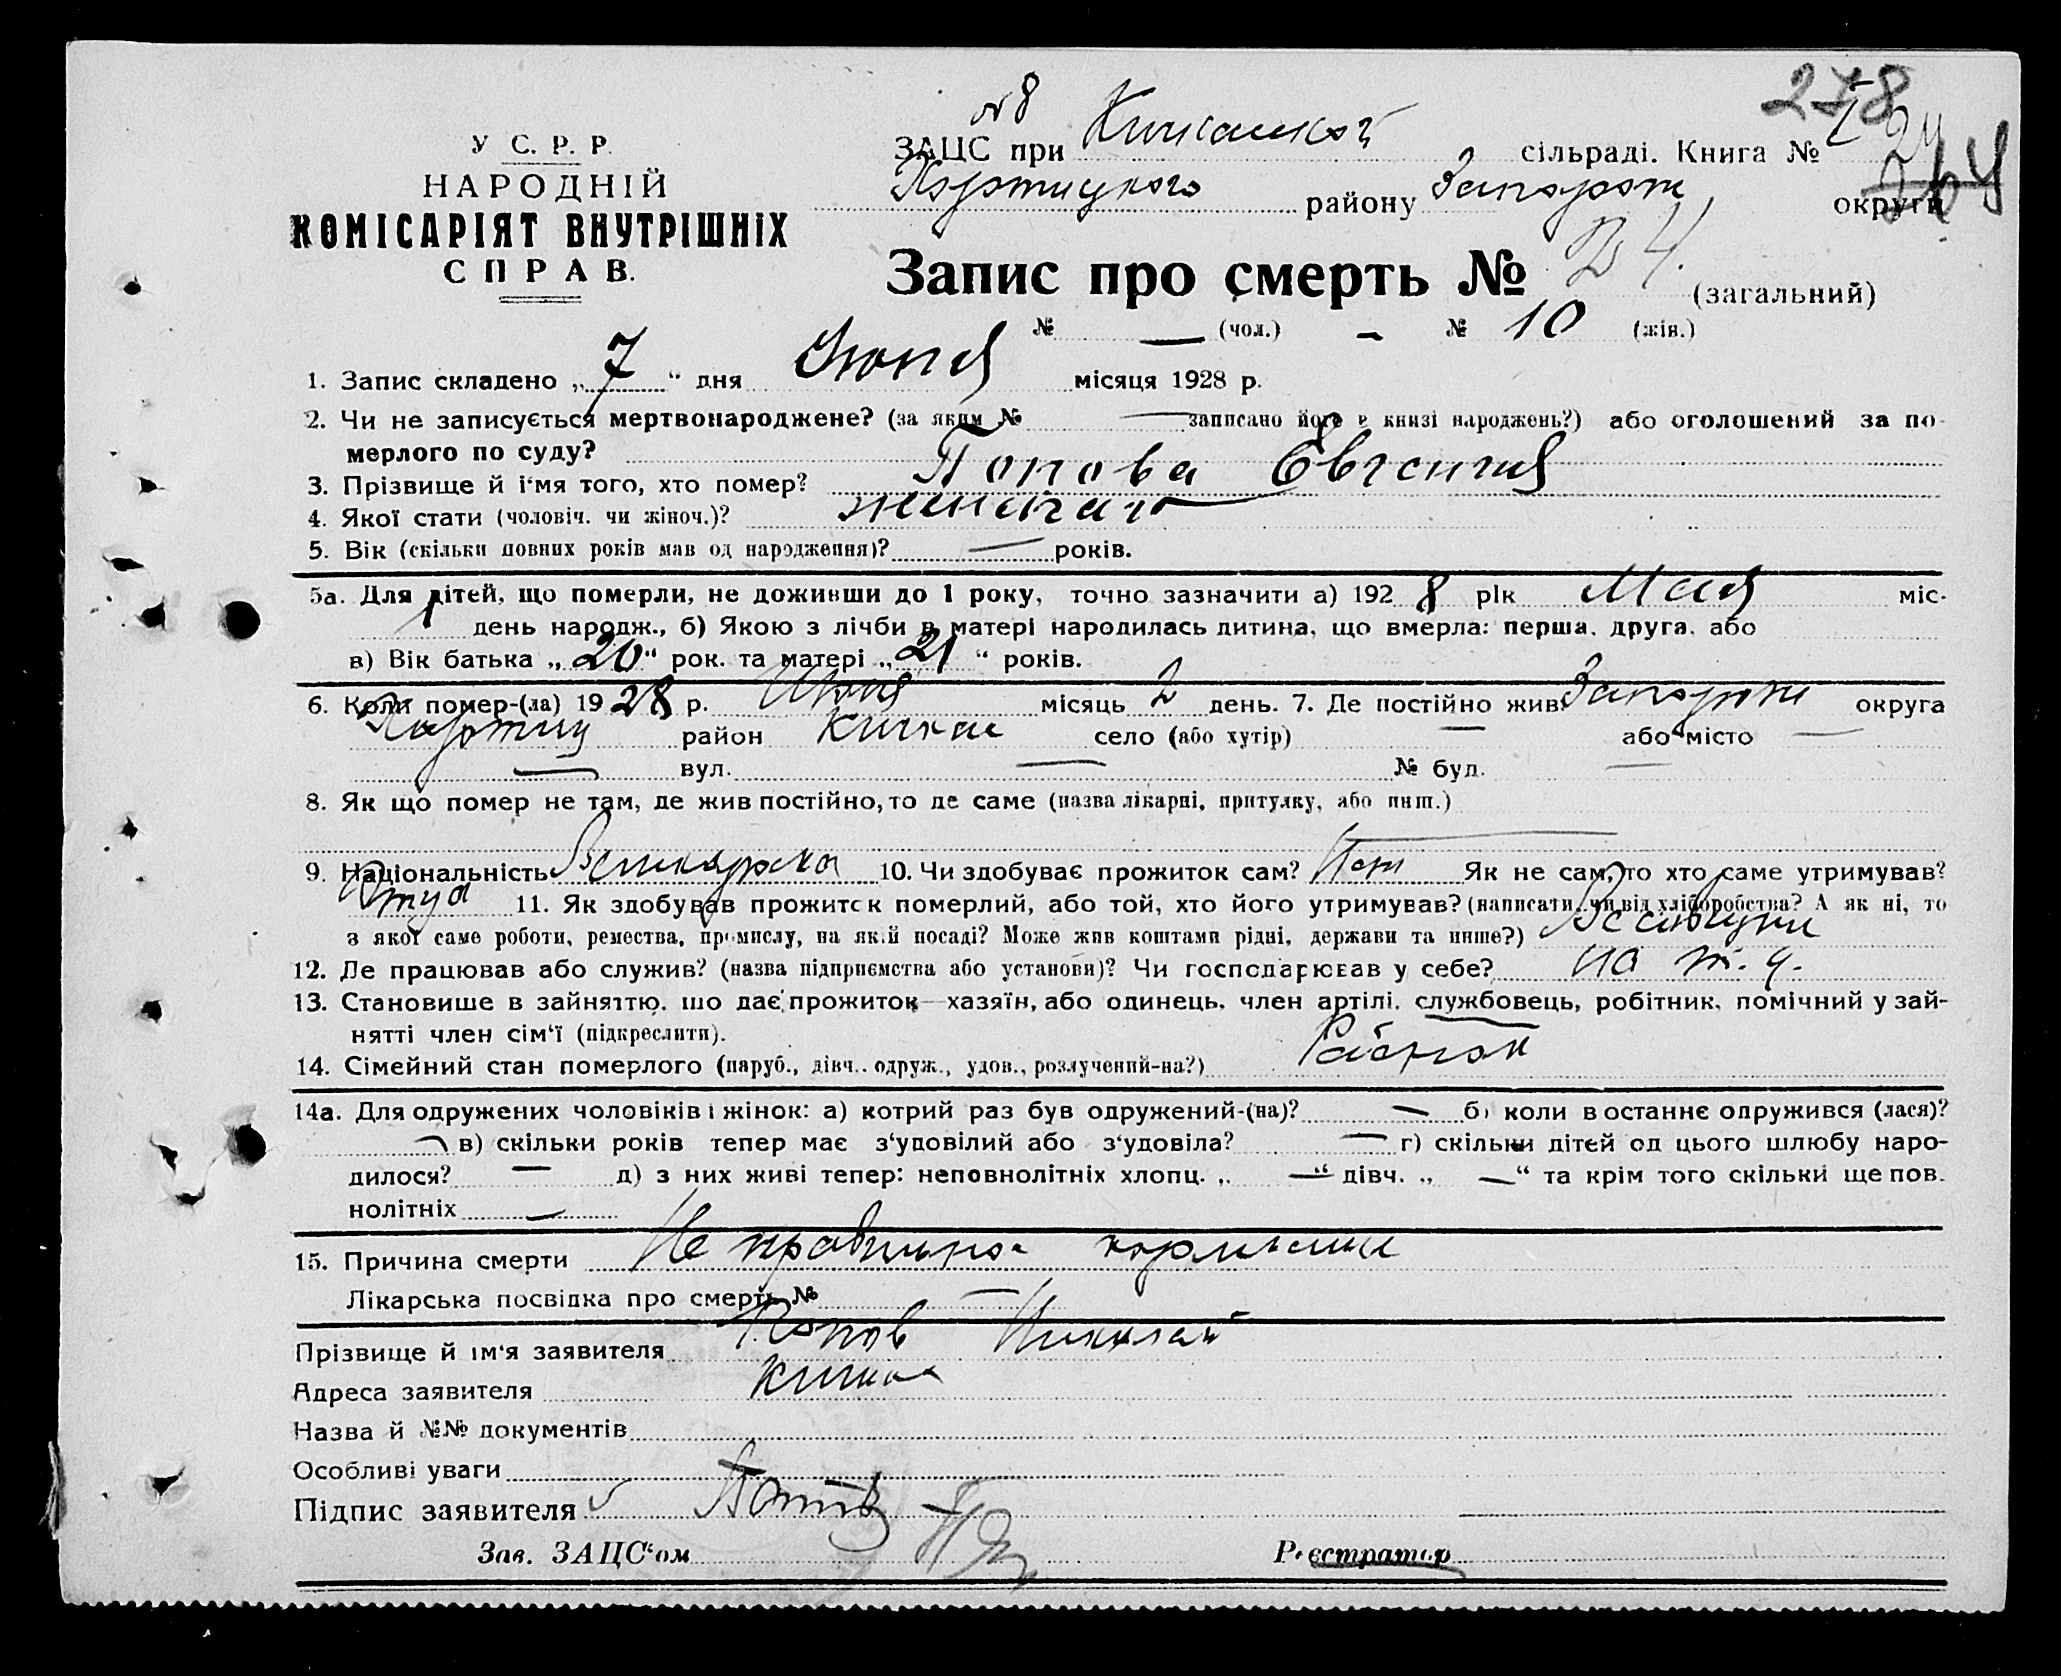 278
№ 8
У. С. Р. Р.
ЗАЦС при Кичкаской сільраді. Книга №
НАРОДНІЙ
Хортицкого району Запорож округи
КОМІСАРІЯТ ВНУТРІШНІХ
СПРАВ.
Запис про смерть № 24. (загальний)
№ — (чол.) - № 10 (жін.)
1. Запис складено „7“ дня Июня місяця 1928 р.
2. Чи не записується мертвонароджене? (за яким № — записано його в книзі народжень?) або оголошений за по-
мерлого по суду?
3. Прізвище й і‘мя того, хто помер? Попова Евгения
4. Якої стати (чоловіч. чи жіноч.)?
5. Вік (скільки повних років мав од народження)? — років.
5а. Для дітей, що померли, не доживши до 1 року, точно зазначити а) 1928 рік Мая міс-
1 день народж., б) Якою з лічби в матері народилась дитина, що вмерла: перша, друга, або
в) Вік батька „20“ рок. та матері „21“ років.
6. Коли помер-(ла) 1928 р. Июня місяць 2 день. 7. Де постійно жив Запорож округа
Хортиц район Кичкас село (або хутір) — або місто —
— вул. — № буд. —
8. Як що помер не там, де жив постійно, то де саме (назва лікарні, притулку, або инш.)
—
9. Національність Великорska 10. Чи здобуває прожиток сам? Нет Як не сам, то хто саме утримував?
Отца 11. Як здобував прожиток померлий, або той, хто його утримував? (написати, чи від хліборобства? А як ні, то
з якої саме роботи, ремества, промислу, на якій посаді? Може жив коштами рідні, держави та инше?)
12. Де працював або служив? (назва підприємства або установи)? Чи господарював у себе? на
13. Становище в зайняттю, що дає прожиток—хазяїн, або одинець, член артілі, службовець, робітник, помічний у зай-
нятті член сім‘ї (підкреслити).
14. Сімейний стан померлого (паруб., дівч., одруж., удов., розлучений-на?) Ребенок
14а. Для одружених чоловіків і жінок: а) котрий раз був одружений-(на)? — б) коли в останнє одружився (лася)?
— в) скільки років тепер має з‘удовілий або з‘удовіла? — г) скільки дітей од цього шлюбу наро-
дилося? — д) з них живі тепер: неповнолітніх хлопц. „—“ дівч. „—“ та крім того скільки ще пов-
нолітніх —
15. Причина смерти Не правильное кормление
Лікарська посвідка про смерть № —
Прізвище й ім‘я заявителя Попов Николай
Адреса заявителя Кичкас
Назва й №№ документів
Особливі уваги
Підпис заявителя
Зав. ЗАЦС‘ом Реєстратор